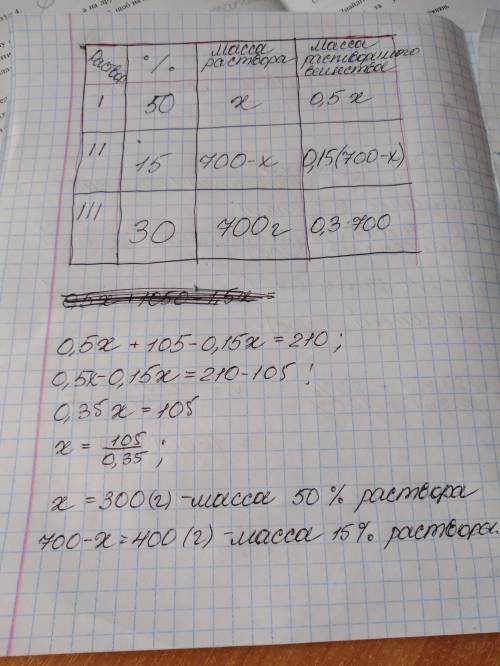 Раствор % масса раствора масса растворимого вещества
I 50 x 0,5x
II 15 700-x 0,15(700-x)
III 30 700г 0,3·700
0,5x+105-0,15x=210;
0,5x-0,15x=210-105;
0,35x=105
x=105/0,35;
x=300(г)-масса 50% раствора
700-x=400(г)-масса 15% раствора.